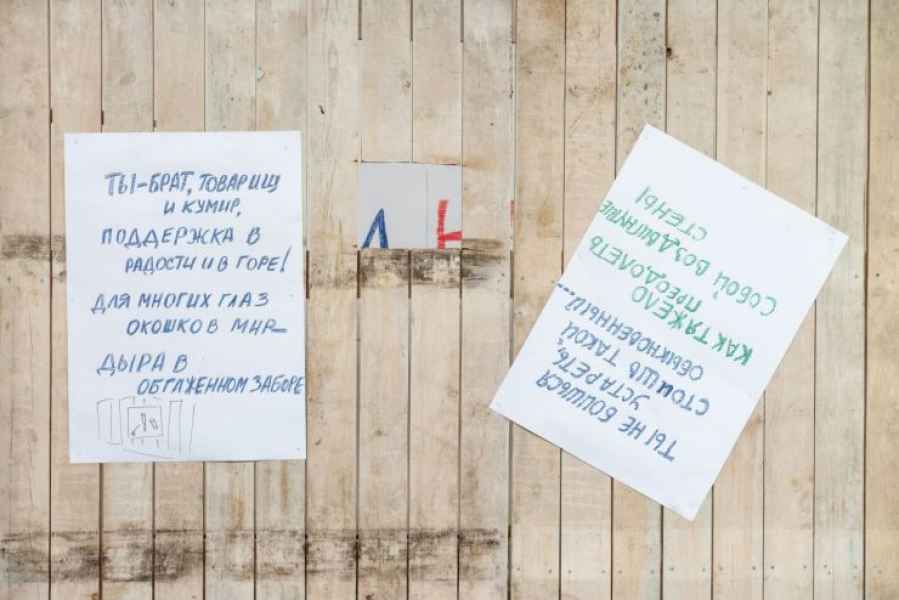 ТЫ-БРАТ, ТОВАРИЩ
И КУМИР,
ПОДДЕРЖКА В
РАДОСТИ И В ГОРЕ!
ДЛЯ МНОГИХ ГЛАЗ
ОКОШКО В МИР_
ДЫРА В
ОБГАЖЕННОМ ЗАБОРЕ
Л
ТЫ НЕ БОИШЬСЯ
УСТАРЕТЬ,
СТОИШЬ ТАКОЙ
ОБЫКНОВЕННЫЙ...
КАК ТЯЖЕЛО
ПРЕОДОЛЕТЬ
СОБОЙ ВОЗДВИГНУТЫЕ
СТЕНЫ